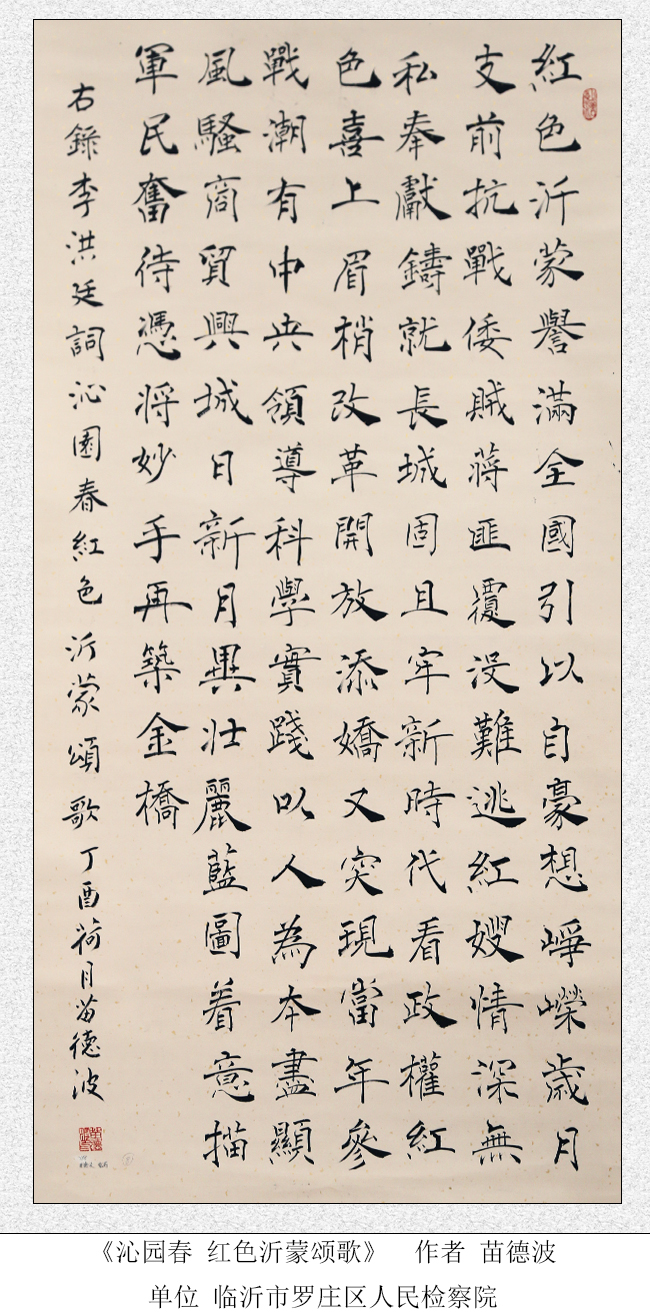 紅色沂蒙譽滿全國引以自豪想崢嶸歲月
支前抗戰倭賊蔣匪覆沒難逃紅嫂情深無
私奉獻鑄就長城固且牢新時代看政權紅
色喜上眉梢改革開放添嬌又突現當年參
戰潮有中央領導科學實踐以人為本盡顯
風騷商貿興城日新月異壯麗藍圖着意描
軍民奮待憑將妙手再築金橋
右錄李洪廷詞沁園春紅色沂蒙頌歌丁酉荷月苗德波
《沁园春 红色沂蒙颂歌》 作者 苗德波
单位 临沂市罗庄区人民检察院